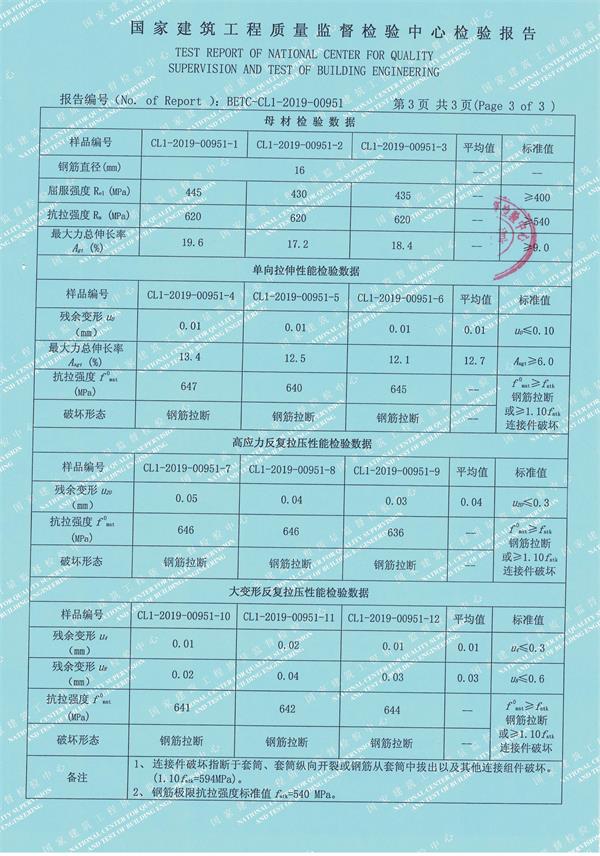 国家建筑工程质量监督检验中心检验报告
TEST REPORT OF NATIONAL CENTER FOR QUALITY
SUPERVISION AND TEST OF BUILDING ENGINEERING
报告编号（No. of Report ）：BETC-CL1-2019-00951 第 3 页 共 3 页(Page 3 of 3 )
母材检验数据
样品编号 CL1-2019-00951-1 CL1-2019-00951-2 CL1-2019-00951-3 平均值 标准值
钢筋直径(mm) 16 — —
屈服强度 ReL (MPa) 445 430 435 — ≥400
抗拉强度 Rm (MPa) 620 620 620 — ≥540
最大力总伸长率 Agt (%) 19.6 17.2 18.4 — ≥9.0
单向拉伸性能检验数据
样品编号 CL1-2019-00951-4 CL1-2019-00951-5 CL1-2019-00951-6 平均值 标准值
残余变形 u0 （mm） 0.01 0.01 0.01 0.01 u0≤0.10
最大力总伸长率 Asgt (%) 13.4 12.5 12.1 12.7 Asgt≥6.0
抗拉强度 f0mst (MPa) 647 640 645 — f0mst≥fstk
钢筋拉断
或≥1.10fstk
连接件破坏
破坏形态 钢筋拉断 钢筋拉断 钢筋拉断 —
高应力反复拉压性能检验数据
样品编号 CL1-2019-00951-7 CL1-2019-00951-8 CL1-2019-00951-9 平均值 标准值
残余变形 u20 （mm） 0.05 0.04 0.03 0.04 u20≤0.3
抗拉强度 f0mst (MPa) 646 646 636 — f0mst≥fstk
钢筋拉断
或≥1.10fstk
连接件破坏
破坏形态 钢筋拉断 钢筋拉断 钢筋拉断 —
大变形反复拉压性能检验数据
样品编号 CL1-2019-00951-10 CL1-2019-00951-11 CL1-2019-00951-12 平均值 标准值
残余变形 u4 （mm） 0.01 0.02 0.01 0.01 u4≤0.3
残余变形 u8 （mm） 0.02 0.04 0.03 0.03 u8≤0.6
抗拉强度 f0mst (MPa) 641 642 644 — f0mst≥fstk
钢筋拉断
或≥1.10fstk
连接件破坏
破坏形态 钢筋拉断 钢筋拉断 钢筋拉断 —
备注
1、 连接件破坏指断于套筒、套筒纵向开裂或钢筋从套筒中拔出以及其他连接组件破坏。
(1.10fstk=594MPa)。
2、 钢筋极限抗拉强度标准值 fstk=540 MPa。